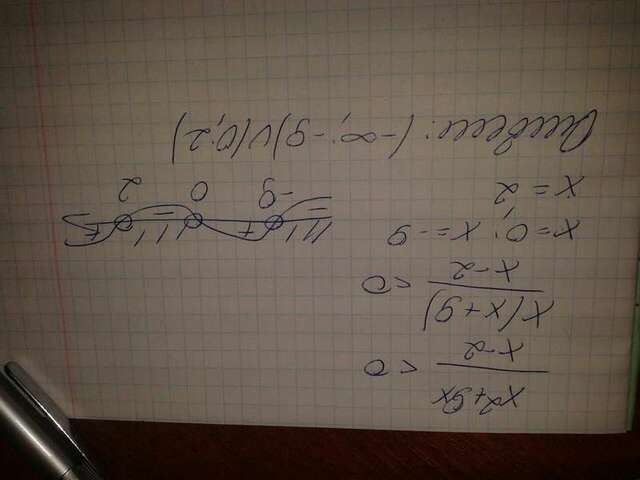 x²+9x
x-2 < 0
x(x+9)
x-2 < 0
x=0; x=-9
x=2
- + - +
-9 0 2
Ответ: (-∞; -9)∪(0; 2)